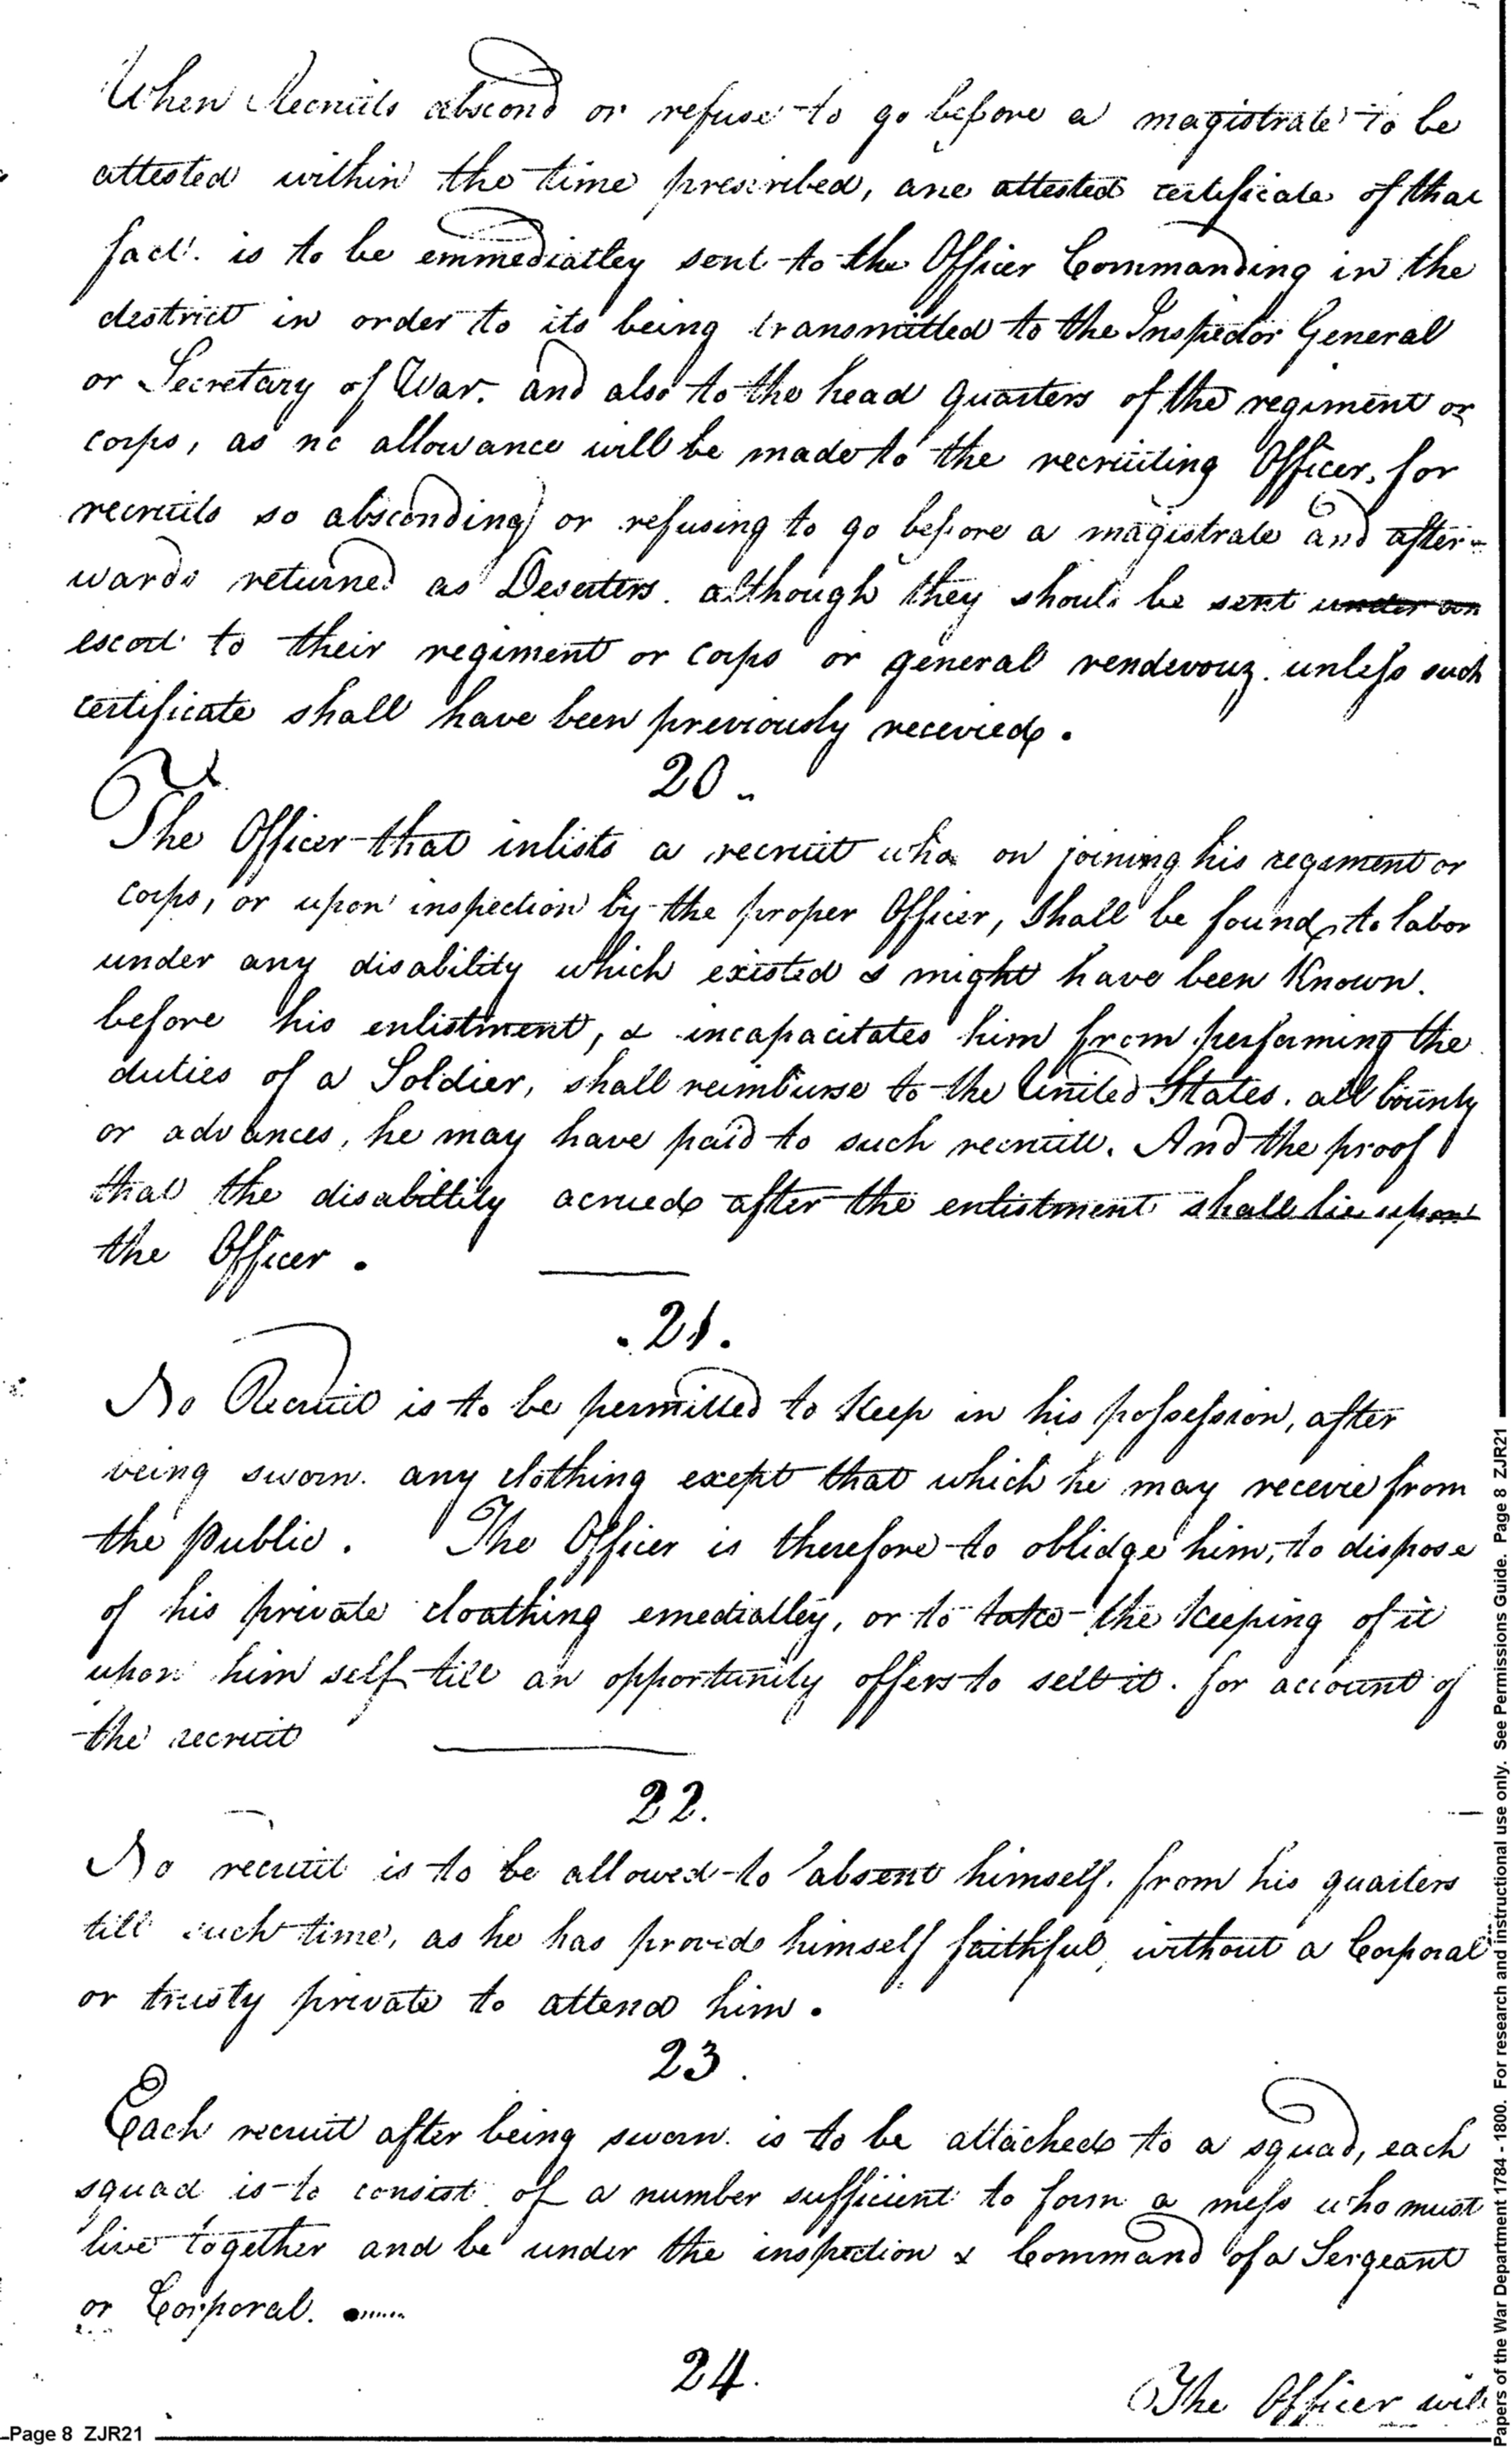 When Recruits abscond or refuse to go before a magistrate to be
attested within the time prescribed, ane attested certificate of that
fact. is to be emmediatley sent to the Officer Commanding in the
destrict in order to its being transmitted to the Inspector General
or Secretary of War. and also to the head quarters of the regiment or
corps, as no allowance will be made to the recruiting Officer, for
recruits so absconding or refusing to go before a magistrate and after-
wards returned as Deserters. although they should be sent under an
escort to their regiment or corps or general rendevouz. unless such
certificate shall have been previously recevied.
20.
The Officer that inlists a recruit who on joining his regement or
corps, or upon inspection by the proper Officer, shall be found to labor
under any disability which existed & might have been Known.
before his enlistment, & incapacitates him from performing the
duties of a Soldier, shall reimburse to the United States. all bounty
or advances, he may have paid to such recruit. And the proof
that the disabillity acrued after the enlistment shall lie upon
the Officer.
.21.
No Recruit is to be permitted to Keep in his possession, after
being sworn. any clothing exept that which he may recevie from
the public. The Officer is therefore to oblidge him, to dispose
of his private cloathing emediatley, or to take the Keeping of it
upon him self till an opportunity offers to sell it. for account of
the recruit
22.
No recruit is to be allowed to absent himself. from his quarters
till such time, as he has proved himself faithful, without a Corporal
or trusty private to attend him.
23.
Each recruit after being sworn. is to be attached to a squad, each
squad is to consist of a number sufficient to form a mess who must
live together and be under the inspection & Command of a Sergeant
or Corporal.
24.
The Officer will
Page 8 ZJR21
Papers of the War Department 1784 - 1800. For research and instructional use only. See Permissions Guide. Page 8 ZJR21